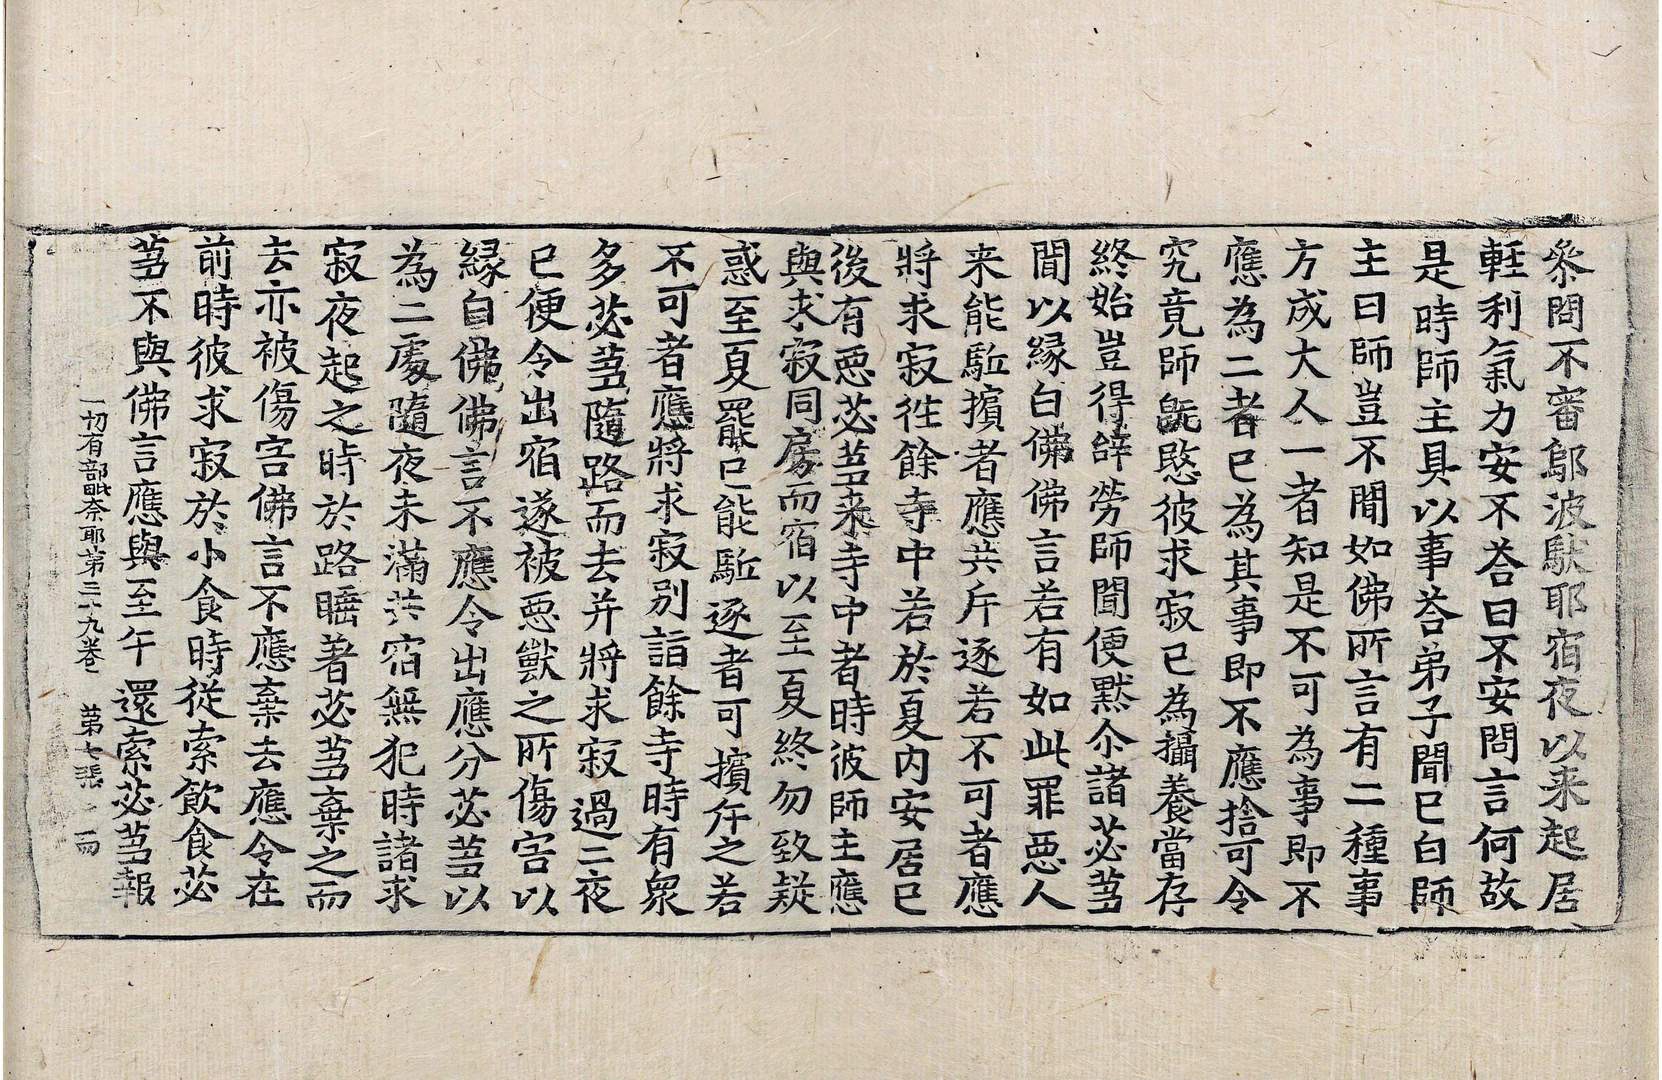 叅問不審鄔波馱耶宿夜以来起居
輊利氣力安不荅曰不安問言何故
是時師主具以事荅弟子聞已白師
主曰師豈不聞如佛所言有二種事
方成大人一者知是不可為事即不
應為二者已為其事即不應捨可令
究竟師旣愍彼求寂已為攝養當存
終始豈得辝勞師聞便默尒諸苾蒭
聞以緣白佛佛言若有如此罪惡人
来能駈擯者應共斥逐若不可者應
將求寂徃餘寺中若於夏內安居已
後有惡苾蒭来寺中者時彼師主應
與求寂同房而宿以至夏終勿致疑
惑至夏罷已能駈逐者可擯斥之若
不可者應將求寂別詣餘寺時有衆
多苾蒭隨路而去并將求寂過二夜
已便令出宿遂被惡獸之所傷害以
緣白佛佛言不應令出應分苾蒭以
為二處隨夜未滿共宿無犯時諸求
寂夜起之時於路睡著苾蒭棄之而
去亦被傷害佛言不應棄去應令在
前時彼求寂於小食時從索飲食苾
蒭不與佛言應與至午還索苾蒭報
一切有部毗奈耶第三十九卷 第七張 而